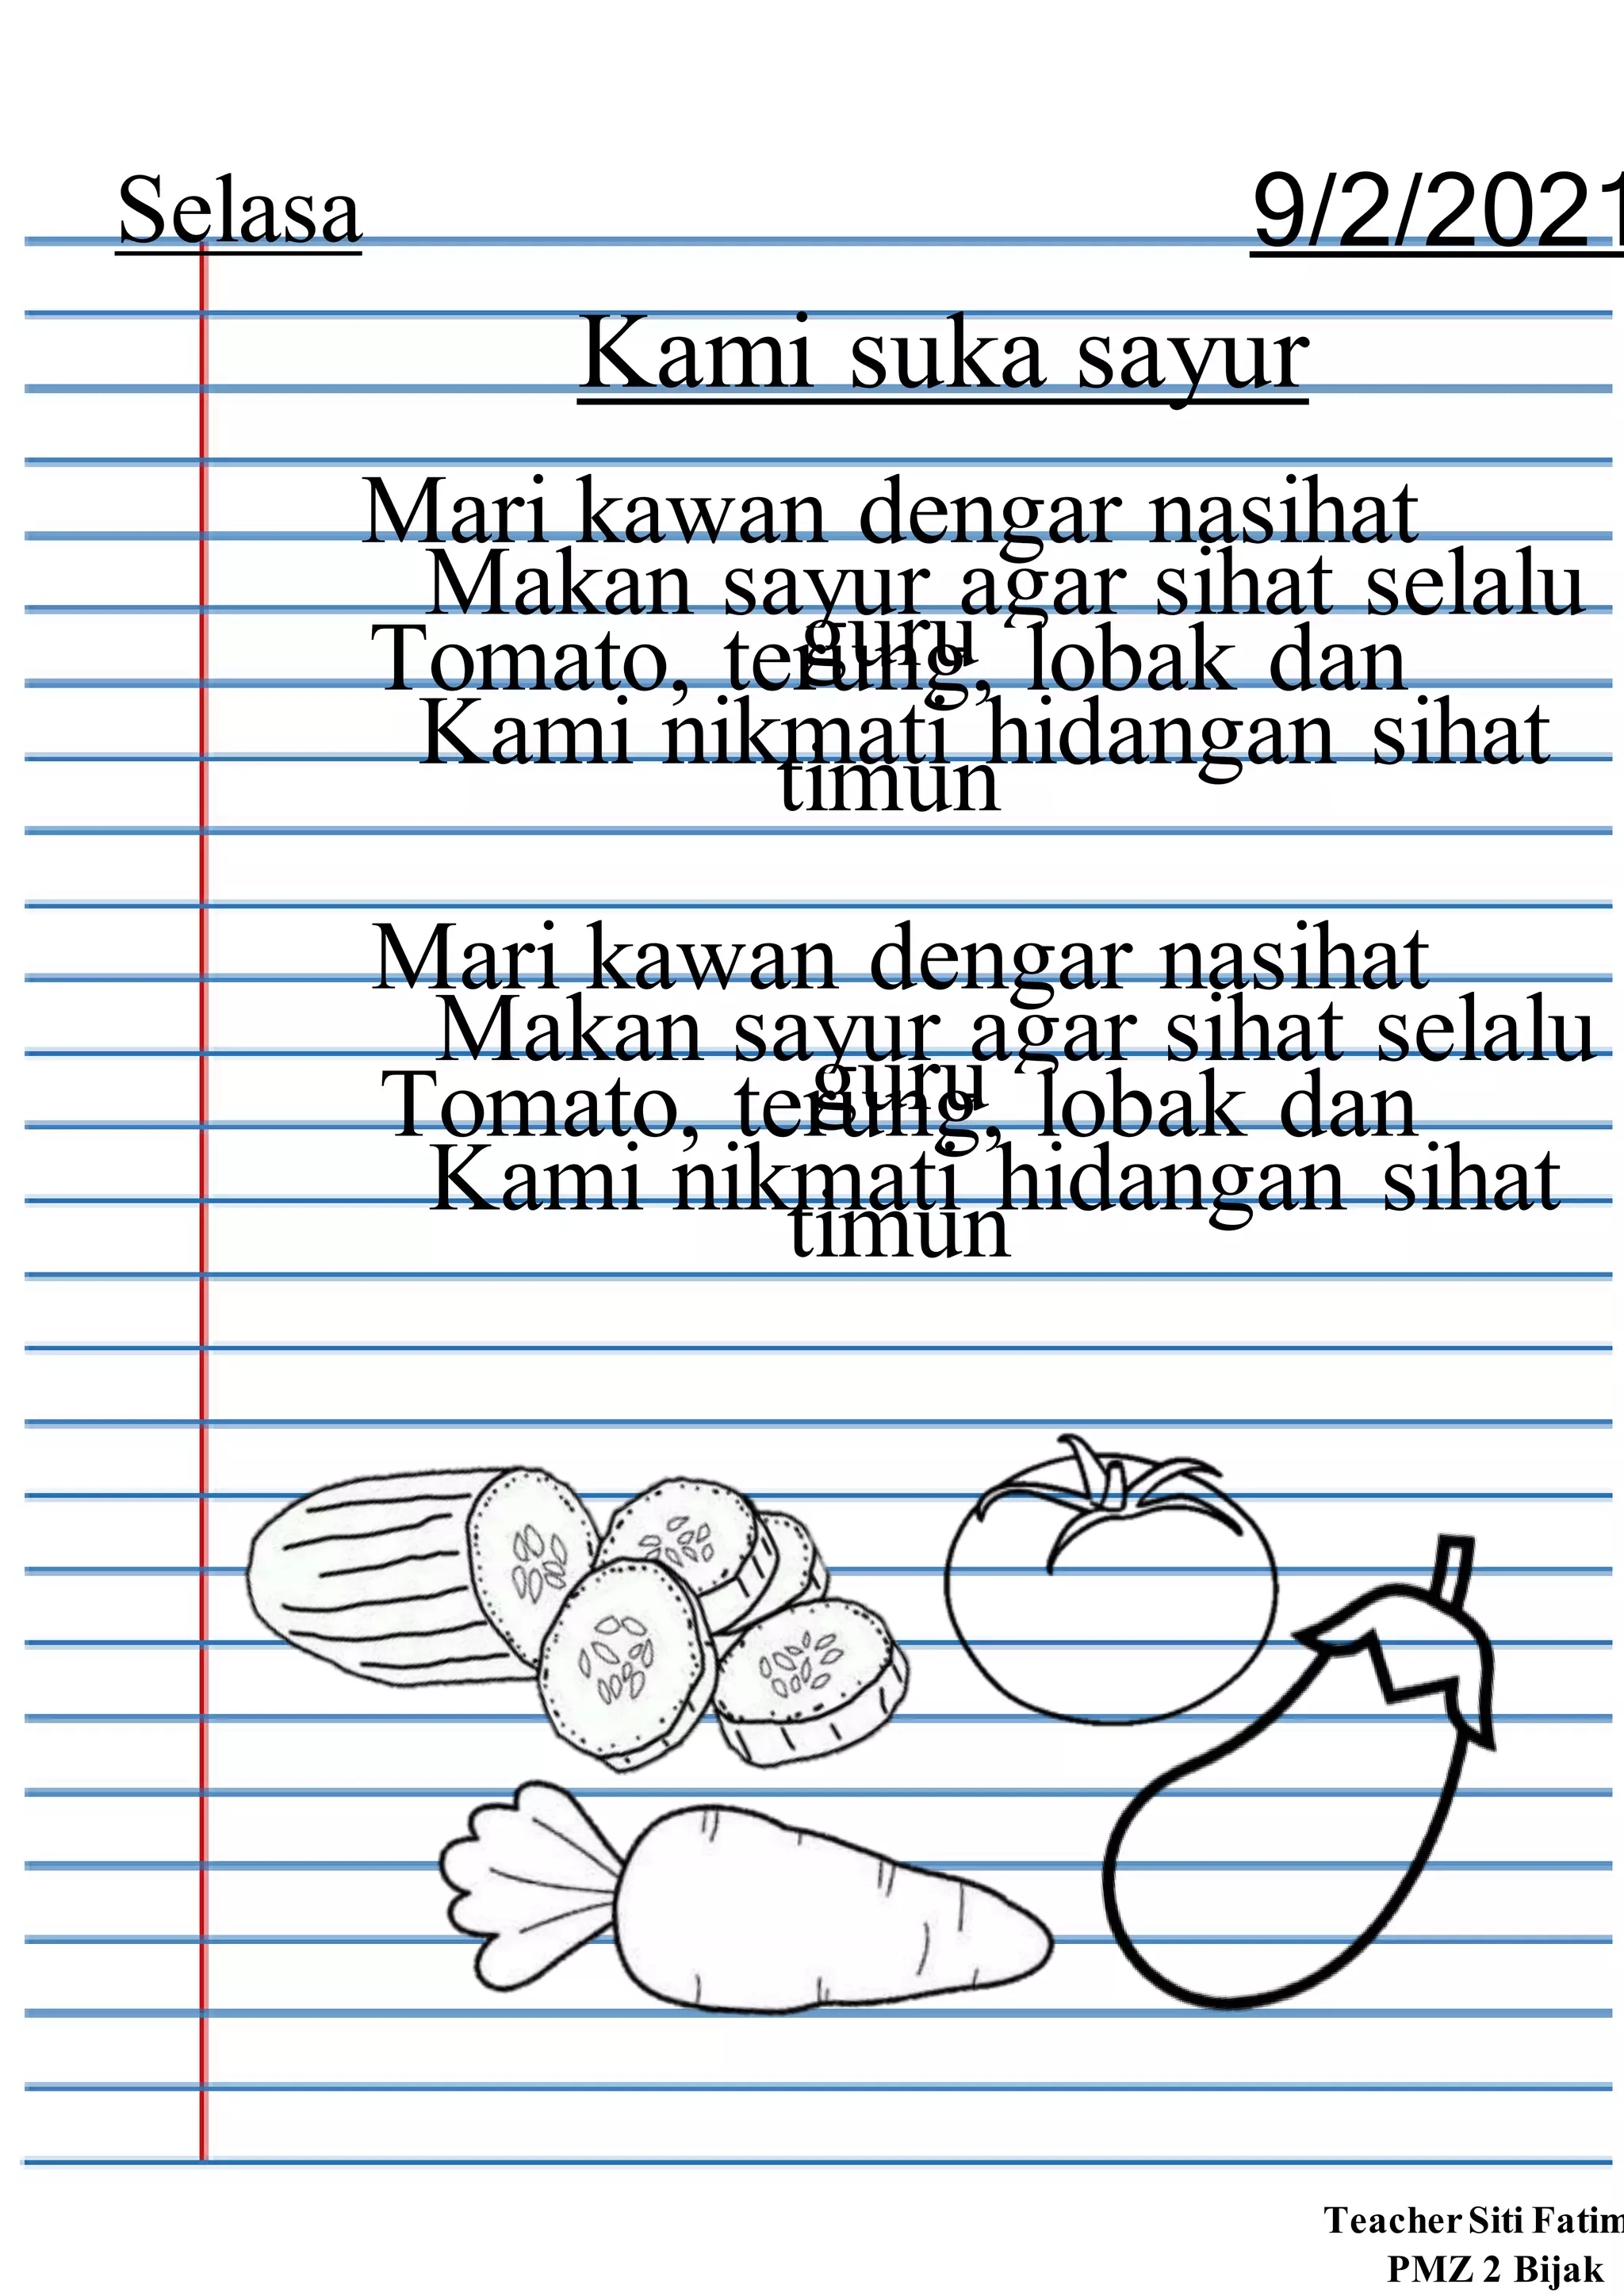 Selasa
9/2/2021
Kami suka sayur
Mari kawan dengar nasihat
Makan sayur agar sihat selalu
guru
Tomato, terung, lobak dan
Kami nikmati hidangan sihat
timun
Mari kawan dengar nasihat
Makan sayur agar sihat selalu
guru
Tomato, terung, lobak dan
Kami nikmati hidangan sihat
timun
Teacher Siti Fatim
PMZ 2 Bijak